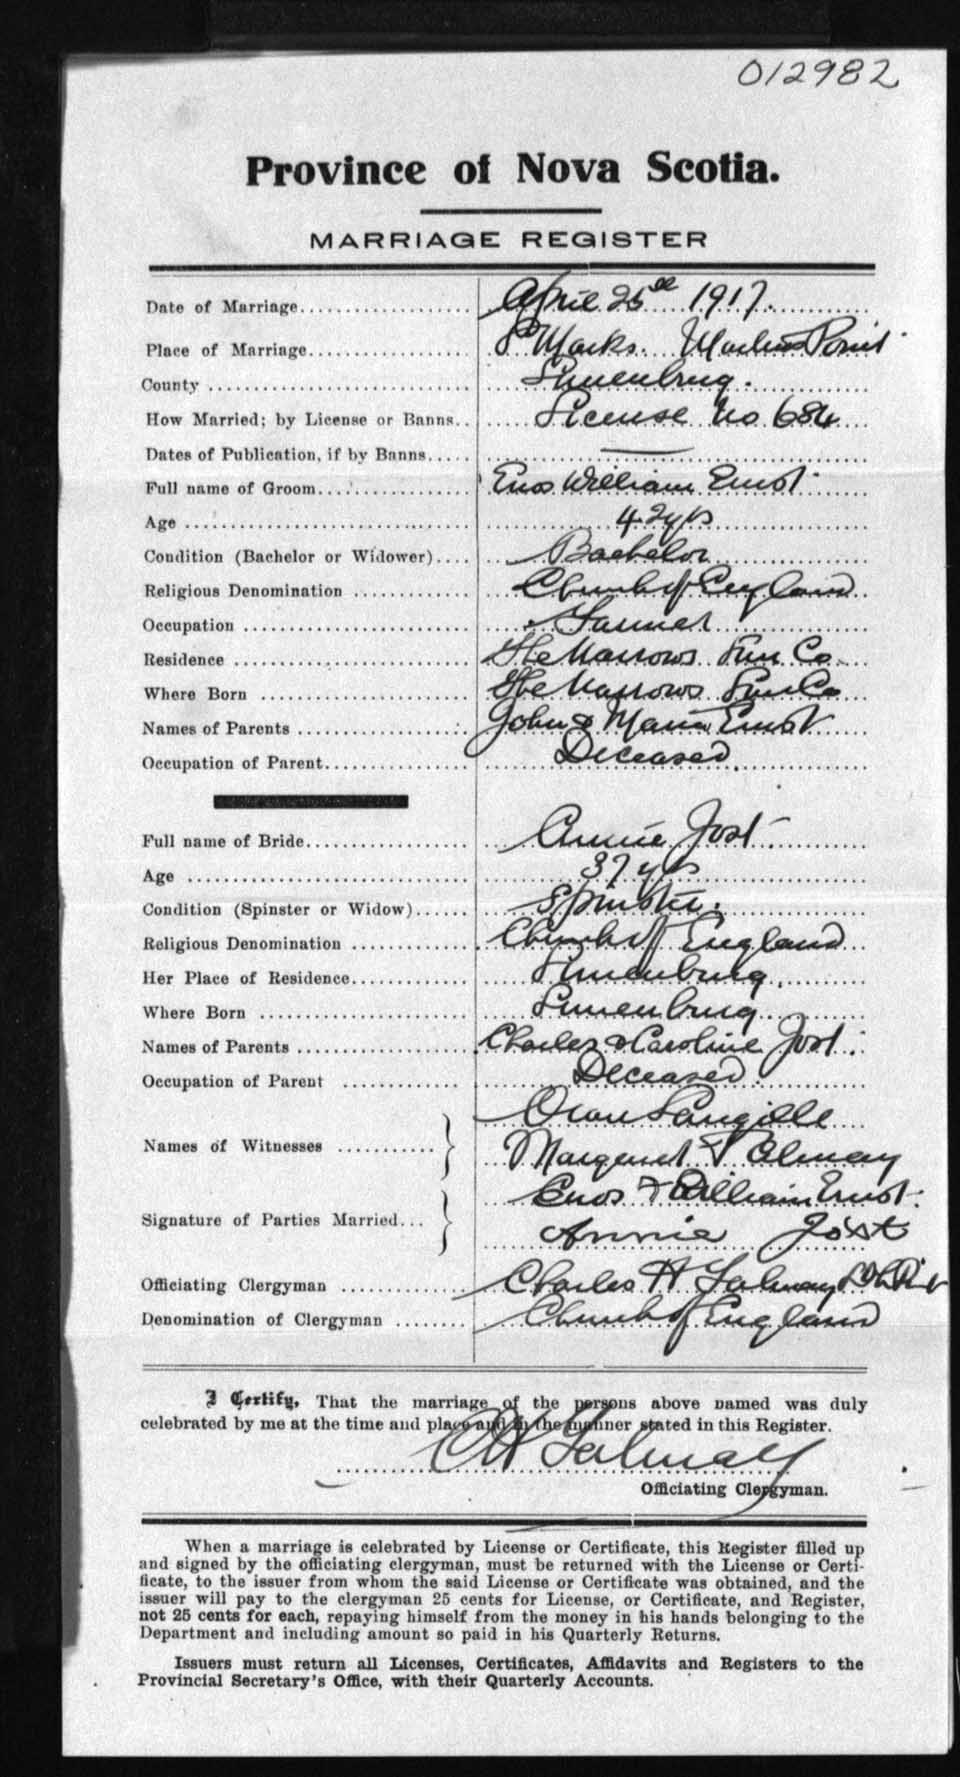 012982
Province of Nova Scotia.
MARRIAGE REGISTER
Date of Marriage April 25th 1917.
Place of Marriage St Marks. Martins Point
County Lunenburg.
How Married; by License or Banns License No 684
Dates of Publication, if by Banns —
Full name of Groom Enos William Ernst
Age 42 yrs
Condition (Bachelor or Widower) Bachelor
Religious Denomination Church of England
Occupation Farmer
Residence The Narrows Lun Co
Where Born The Narrows Lun Co
Names of Parents John & Maria Ernst
Occupation of Parent Deceased
Full name of Bride Annie Jost
Age 37 yrs
Condition (Spinster or Widow) Spinster.
Religious Denomination Church of England
Her Place of Residence Lunenburg
Where Born Lunenburg
Names of Parents Charles & Caroline Jost.
Occupation of Parent Deceased.
Oran Langille
Names of Witnesses
Margaret Talmay
Enos William Ernst.
Signature of Parties Married
Annie Jost
Officiating Clergyman Charles H Talmay
Denomination of Clergyman Church of England
I Certify, That the marriage of the persons above named was duly
celebrated by me at the time and place and in the manner stated in this Register.
CH Talmay
Officiating Clergyman.
When a marriage is celebrated by License or Certificate, this Register filled up
and signed by the officiating clergyman, must be returned with the License or Certi-
ficate, to the issuer from whom the said License or Certificate was obtained, and the
issuer will pay to the clergyman 25 cents for License, or Certificate, and Register,
not 25 cents for each, repaying himself from the money in his hands belonging to the
Department and including amount so paid in his Quarterly Returns.
Issuers must return all Licenses, Certificates, Affidavits and Registers to the
Provincial Secretary's Office, with their Quarterly Accounts.